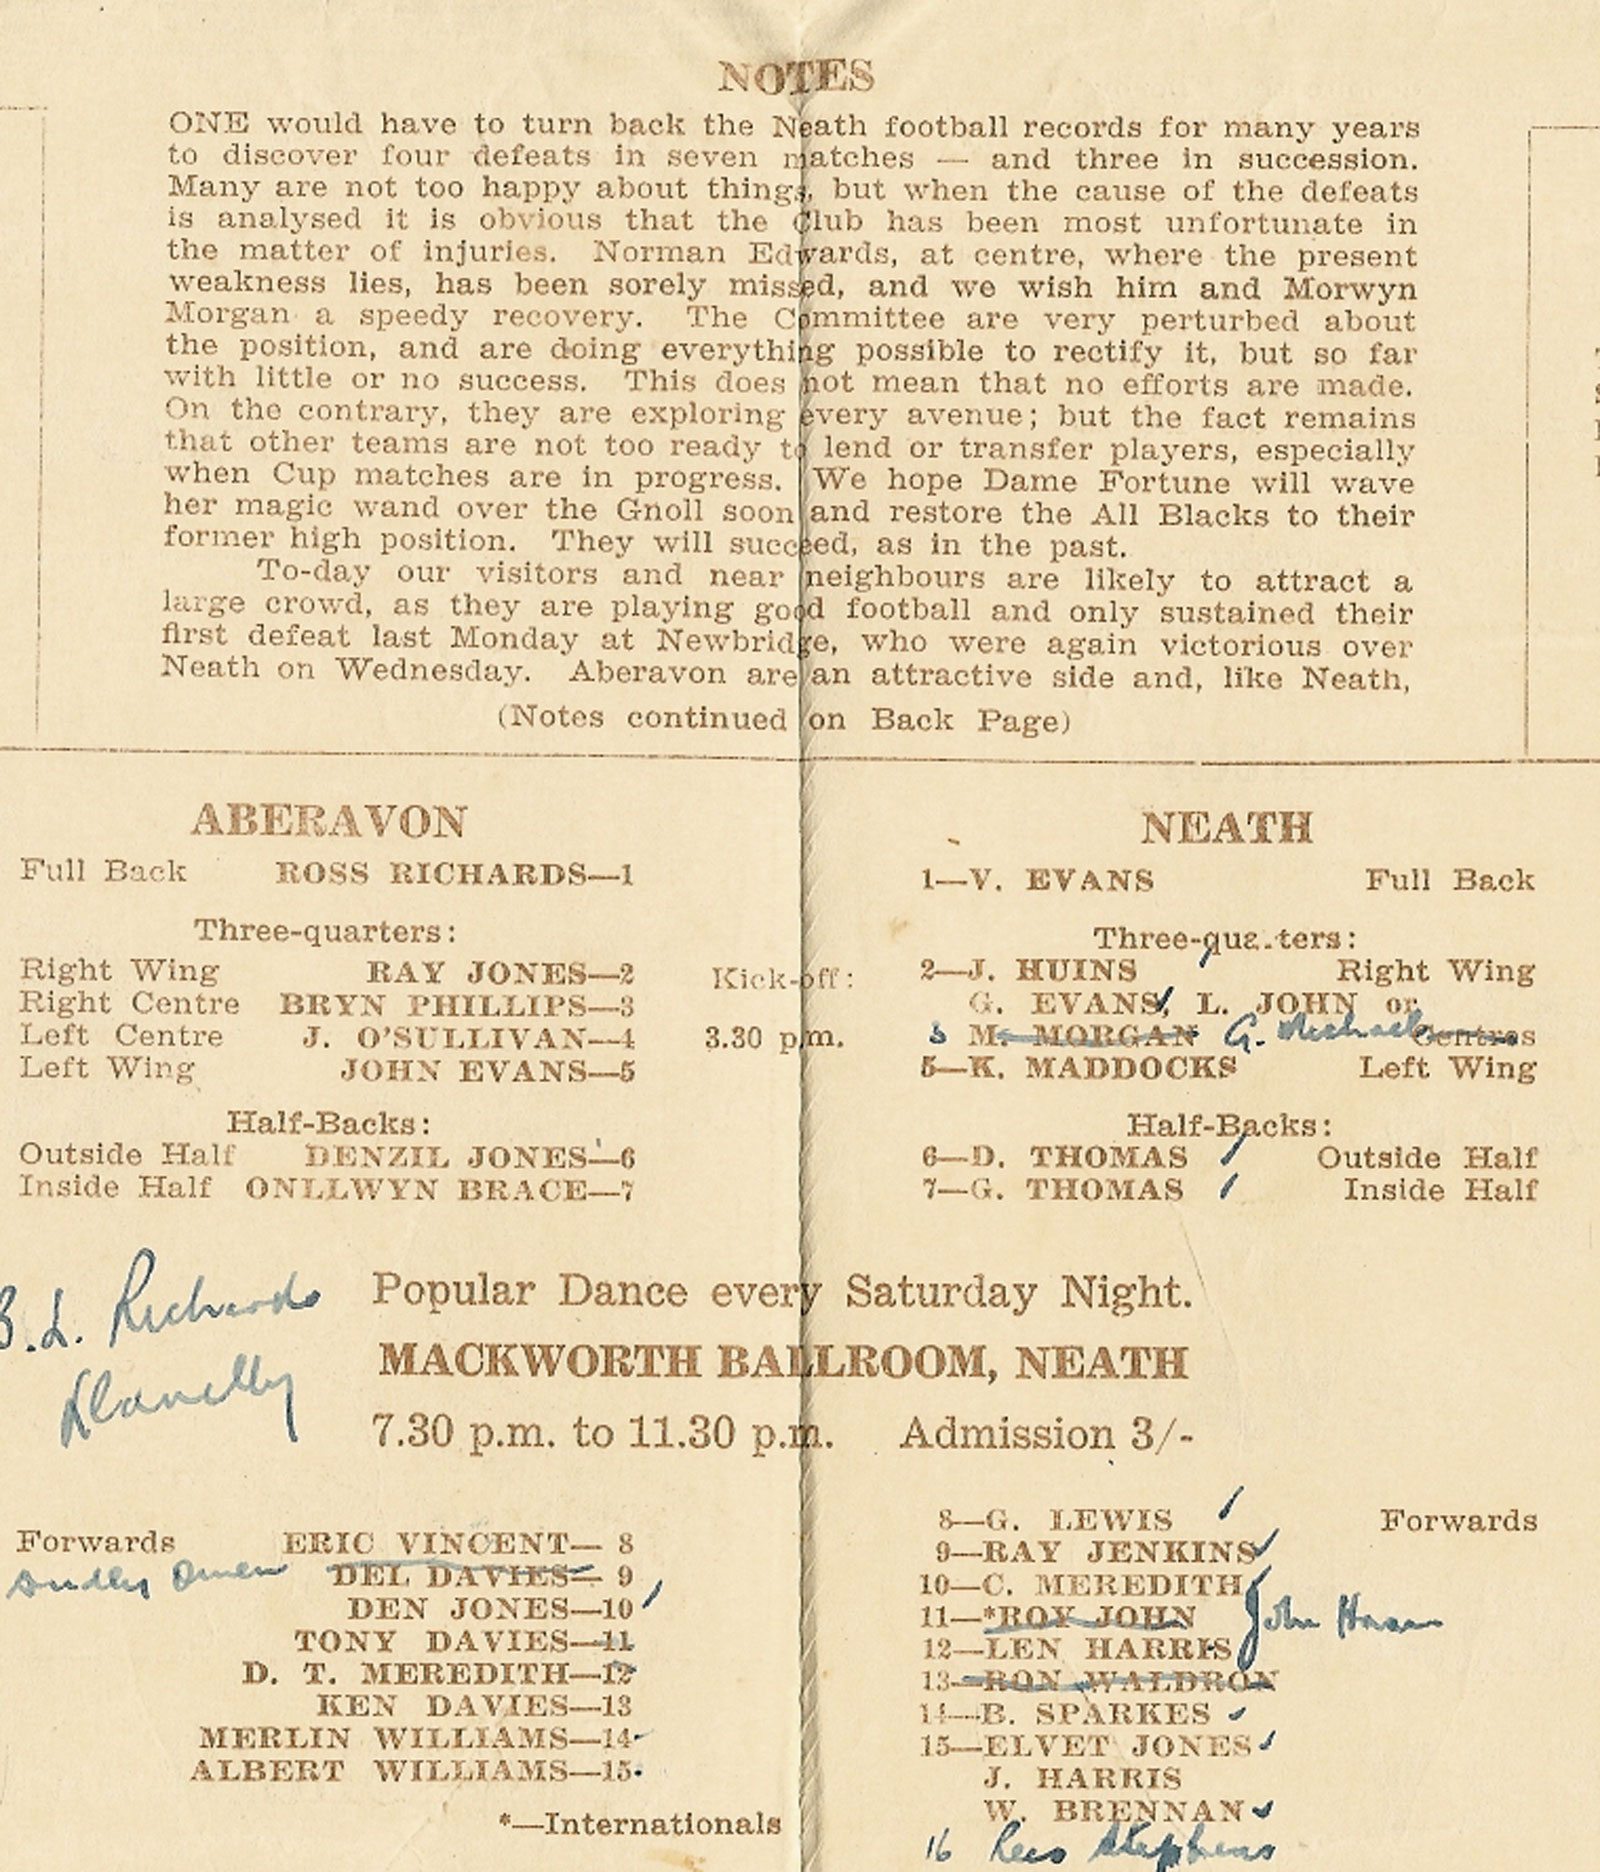 NOTES
ONE would have to turn back the Neath football records for many years
to discover four defeats in seven matches — and three in succession.
Many are not too happy about things, but when the cause of the defeats
is analysed it is obvious that the Club has been most unfortunate in
the matter of injuries. Norman Edwards, at centre, where the present
weakness lies, has been sorely missed, and we wish him and Morwyn
Morgan a speedy recovery. The Committee are very perturbed about
the position, and are doing everything possible to rectify it, but so far
with little or no success. This does not mean that no efforts are made.
On the contrary, they are exploring every avenue; but the fact remains
that other teams are not too ready to lend or transfer players, especially
when Cup matches are in progress. We hope Dame Fortune will wave
her magic wand over the Gnoll soon and restore the All Blacks to their
former high position. They will succeed, as in the past.
To-day our visitors and near neighbours are likely to attract a
large crowd, as they are playing good football and only sustained their
first defeat last Monday at Newbridge, who were again victorious over
Neath on Wednesday. Aberavon are an attractive side and, like Neath,
(Notes continued on Back Page)
ABERAVON
Full Back ROSS RICHARDS—1
Three-quarters:
Right Wing RAY JONES—2
Right Centre BRYN PHILLIPS—3
Left Centre J. O'SULLIVAN—4
Left Wing JOHN EVANS—5
Half-Backs:
Outside Half DENZIL JONES—6
Inside Half ONLLWYN BRACE—7
Kick-off:
3.30 p.m.
NEATH
1—V. EVANS Full Back
Three-quarters:
2—J. HUINS Right Wing
G. EVANS, L. JOHN or
3 M. MORGAN G. Michael Centres
5—K. MADDOCKS Left Wing
Half-Backs:
6—D. THOMAS Outside Half
7—G. THOMAS Inside Half
B. L. Richards
Llanelly
Popular Dance every Saturday Night.
MACKWORTH BALLROOM, NEATH
7.30 p.m. to 11.30 p.m. Admission 3/-
Forwards ERIC VINCENT— 8
Owen DEL DAVIES— 9
DEN JONES—10
TONY DAVIES—11
D. T. MEREDITH—12
KEN DAVIES—13
MERLIN WILLIAMS—14
ALBERT WILLIAMS—15
*—Internationals
8—G. LEWIS Forwards
9—RAY JENKINS
10—C. MEREDITH
11—*ROY JOHN John
12—LEN HARRIS
13—RON WALDRON
14—B. SPARKES
15—ELVET JONES
J. HARRIS
W. BRENNAN
16 Rees Stephens